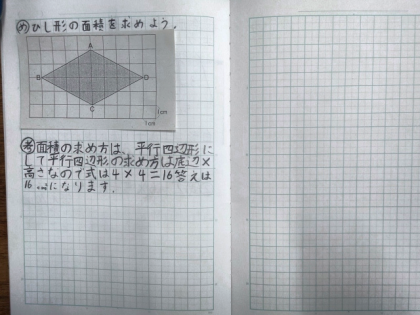 め ひし形の面積を求めよう。
A
B
D
C
1cm
1cm
考 面積の求め方は、平行四辺形に
して平行四辺形の求め方は底辺×
高さなので式は4×4=16答えは
16cm²になります。